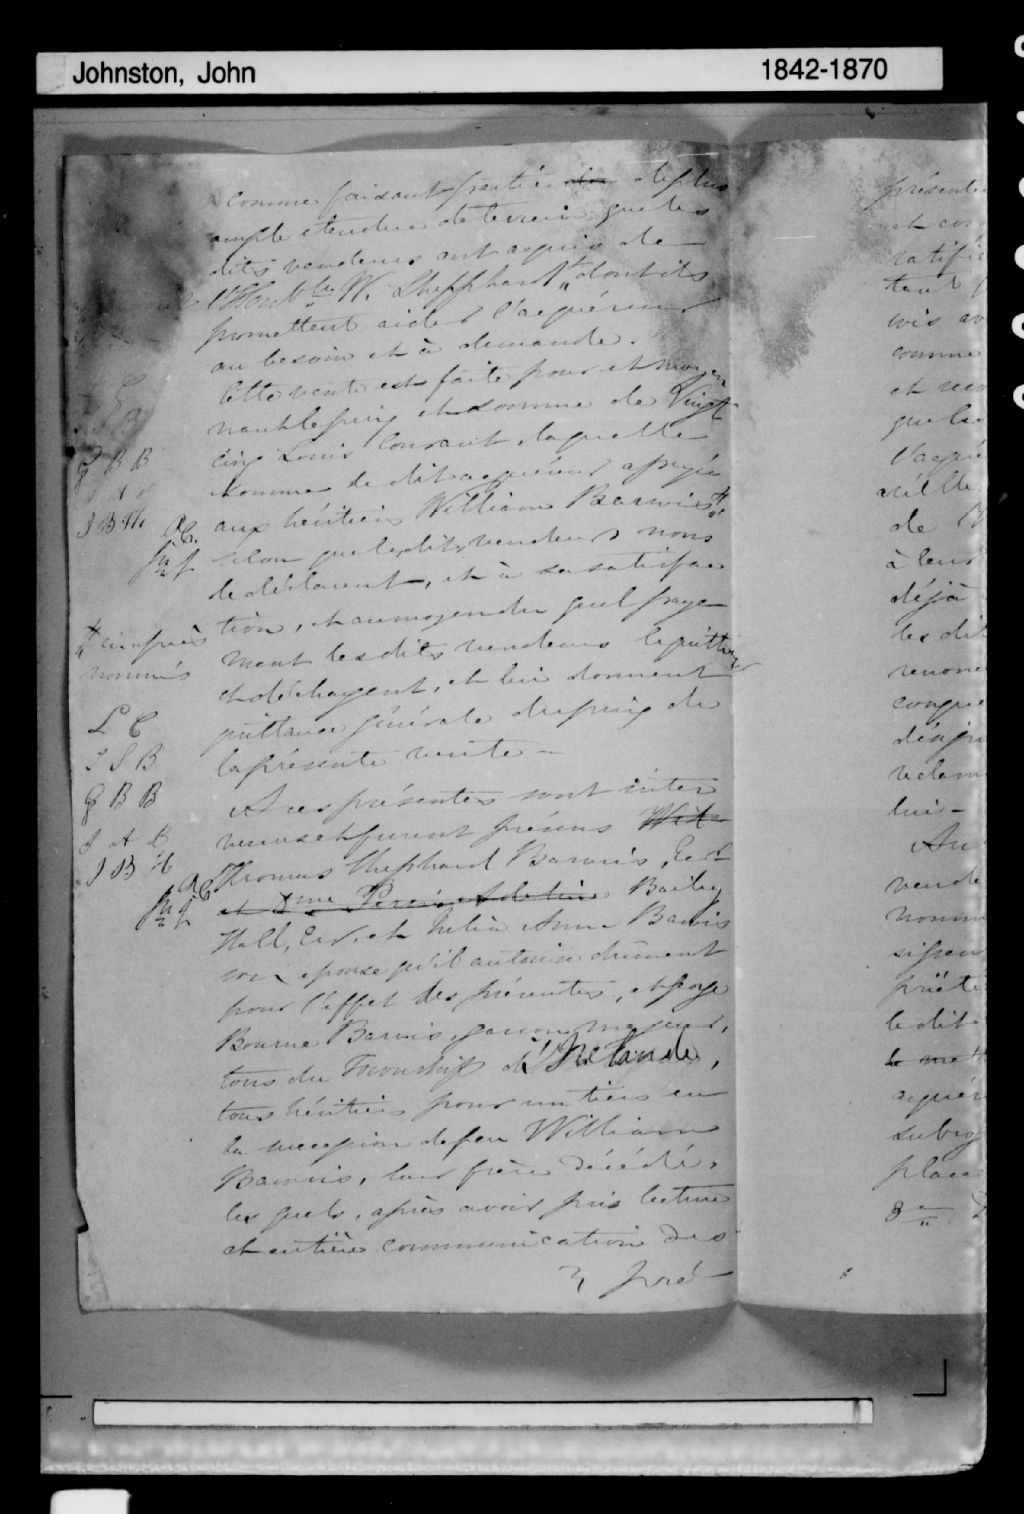 Johnston, John 1842-1870
Comme faisant partie de plus
ample étendue de terrein que les
dits vendeurs ont acquis de
l'Honble W. Sheppard, dont ils
promettent aider l'acquéreur
au besoin et à demande.
Cette vente est faite pour et moyen
nant le prix et somme de Vingt
cinq Louis Courant, laquelle
somme le dit acquéreur a payée
aux héritiers William Barwis #
selon que les dits vendeurs nous
le déclarent, et à sa satisfac
tion, et au moyen du quel paye
ment les dits vendeurs le quittent
et déchargent, et lui donnent
quittance générale du prix de
la présente vente —
A ces présentes sont inter
venus et furent présens
Thomas Sheppard Barwis, Ecr
et Dme Bailey
Hall, Ecr, et Julia Anne Barwis
son épouse qu'il autorise dûment
pour l'effet des présentes, et George
Bourne Barwis, garçon majeur,
tous du Township d'Irelande,
tous héritiers pour un tiers en
la succession de feu William
Barwis, leur frère décédé,
les quels, après avoir pris lecture
et entière communication des
pré
G B B
J B H
# ci après
nommés
L C
T S B
G B B
J A B
J B H
présente
et con
ratifié
tout
vis av
comme
et rec
que les
l'acqué
de B
à leur
déjà
les dit
renonc
lui —
vende
nomm
le dit
acquér
subrog
place